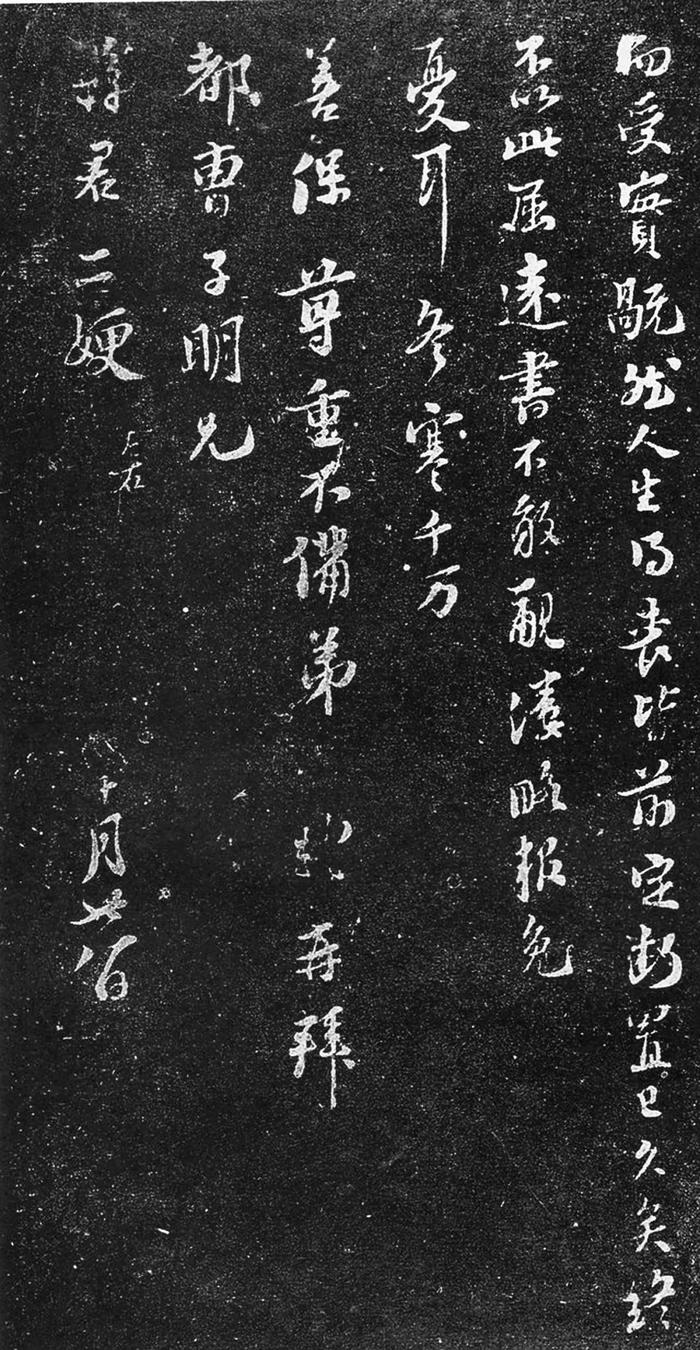 而受實然人生得喪皆前定斷置已久矣終
不以此屈遠書不敢覼縷略報免
憂耳冬寒千万
善保尊重不備弟軾再拜
都曹子明兄
君二嫂左右十月廿